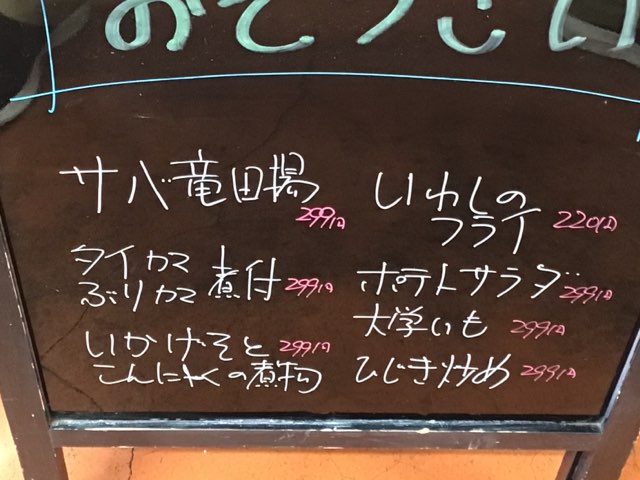 おそうざい
サバ竜田揚
299円
タイカマ
ぶりカマ 煮付 299円
いかげそと 299円
こんにゃくの煮物
いわしの
フライ 220円
ポテトサラダ 299円
大学いも 299円
ひじき炒め 299円